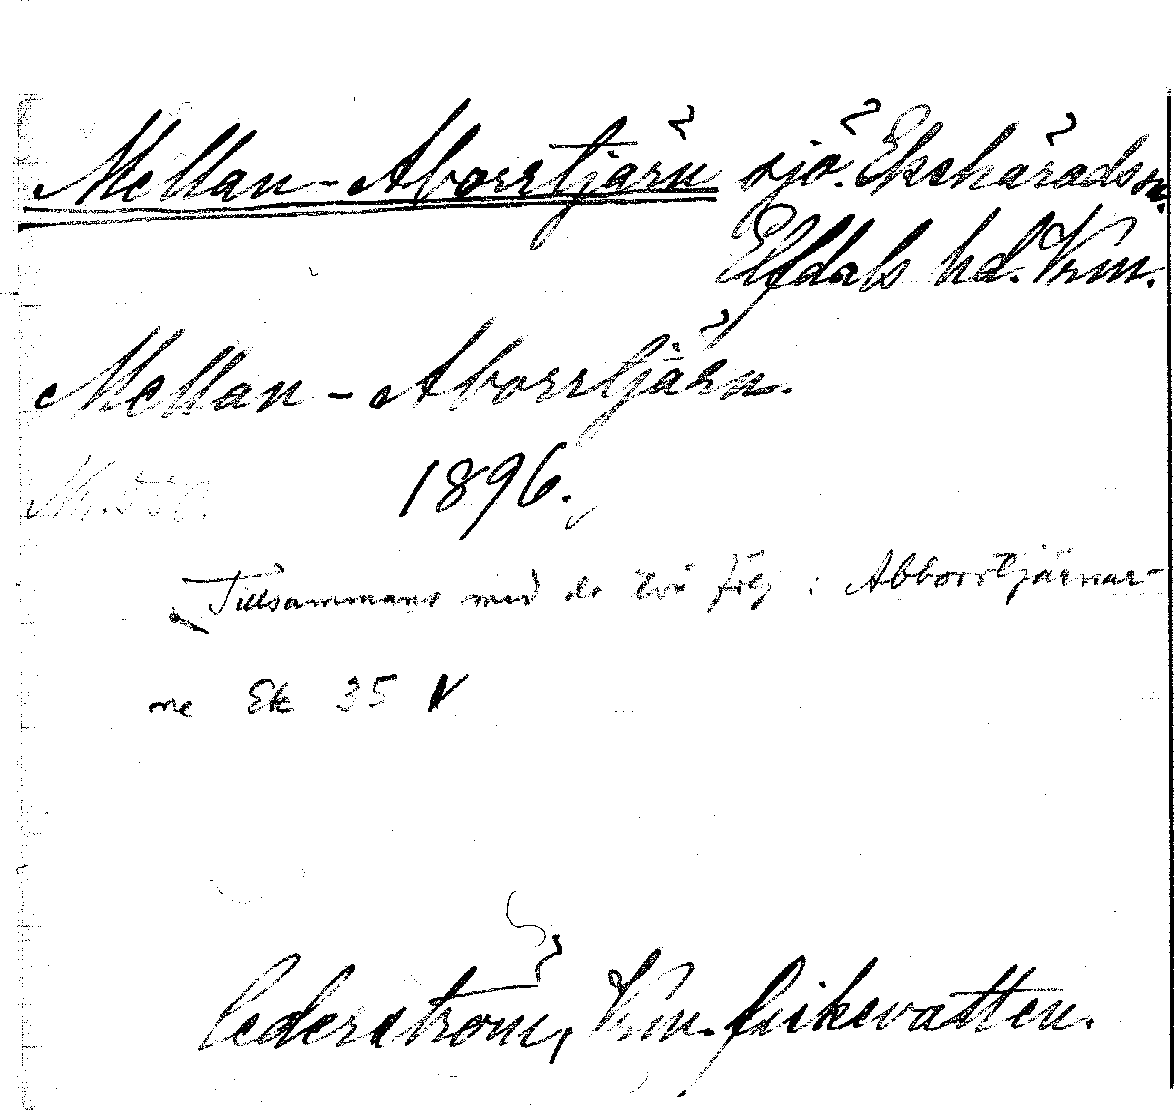 Mellan-Aborrtjärn sjö. Ekshärads sn.
Elfdals hd. Vrm.
Mellan-Aborrtjärn.
1896.
Tillsammans med de två följ : Abborrtjärnar-
ne Ek 35 V
Cederström, Vrm. fiskevatten.